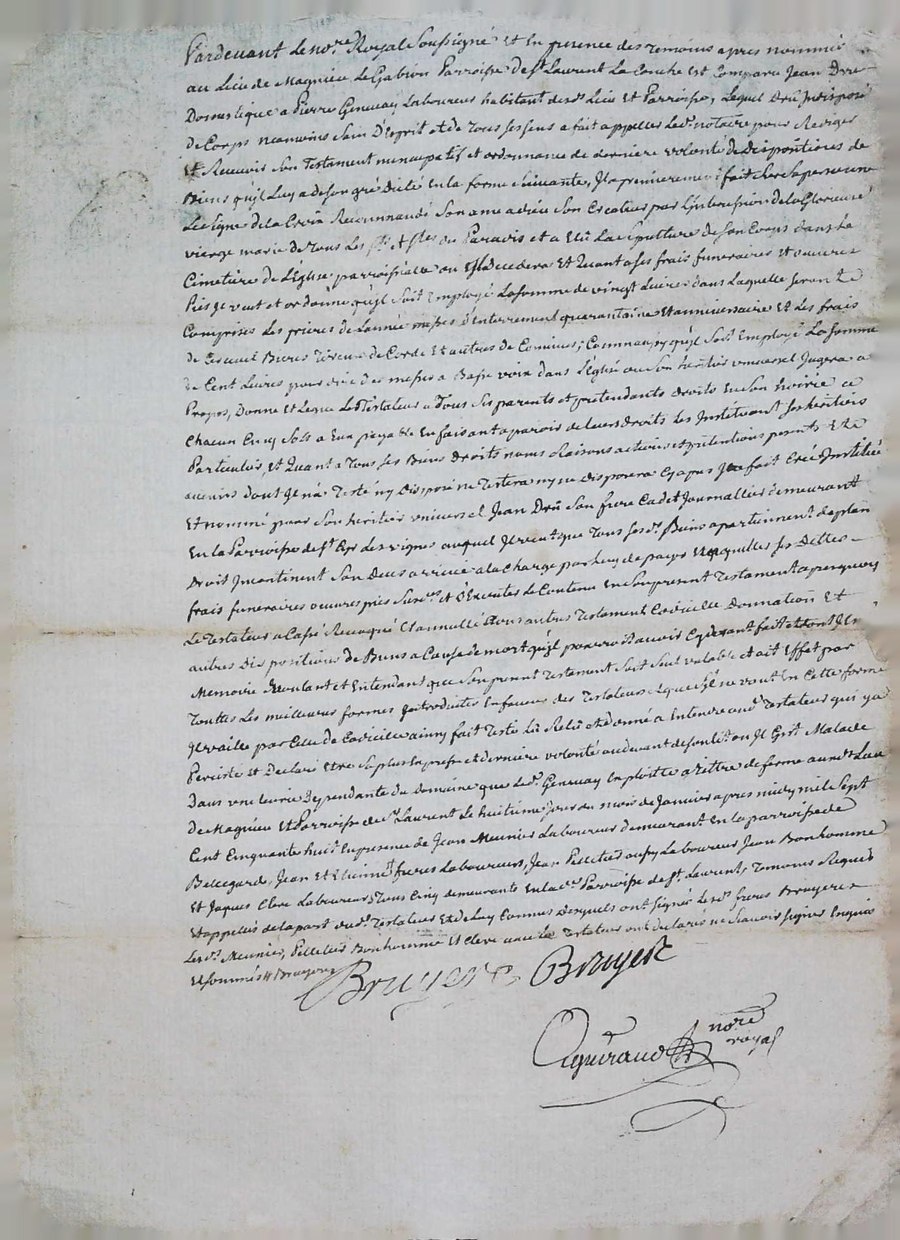 Pardevant Le no.re Royal Soussigné Et En presence des temoins apres nommés
au Lieu de Magnieu Le Gabion Parroisse de St Laurent La Conche Est Comparu Jean Dru
Domestique a Pierre Genevay Laboureur habitant desd. Lieu Et Parroisse, Lequel Dru Indisposé
de Corps neamoins Sain D'Esprit et de Tous ses sens a fait appeller Led. notaire pour Rediger
Et Recevoir Son Testament nuncupatif et ordonnance de derniere volonté de Dispositions de
Biens qu'il Luy a de son gré dicté En la forme Suivante, Il a premierement fait Sur Sa personne
Le Signe de La Croix Recommandé Son ame a dieu Son Createur par L'intercession de la Glorieuse
vierge marie de Tous Les Sts et Stes du Paradis et a Elu La Sepulture de Son Corps dans Le
Cimetiere de L'Eglise parroissialle ou Il decedera Et Quant a ses frais funeraires Et oeuvres
Pies Il veut et ordonne qu'il Soit Employé La somme de vingt Livres dans Laquelle Seront
Comprises Les prieres de L'année messes d'Enterrement quarantaine Et anniversaire Et Les frais
de Cercueil de Corde Et autres de Comme aussy qu'il Soit Employé La Somme
de Cent Livres pour dire des messes a Basse voix dans L'Eglise ou Son heritier universel Jugera a
Propos, Donne et Legue Le Testateur a Tous Ses parents et pretendants droits En Son hoirie a
Chacun Cinq Sols a Eux payable En faisant aparoir de Leurs droits Les Instituant Ses heritiers
Particuliers, et Quant a Tous Ses Biens Droits noms Raisons actions et pretentions presents Et a
avenirs dont Il n'a Testé ny Disposé ne Testera ny ne disposera Cy apres Il a fait Créé Institué
Et nommé pour Son heritier universel Jean Dru Son frere Cadet Journallier demeurant
En la Parroisse de St Cyr Les vignes auquel Il veut que Tous Ses d. Biens apartiennent de plein
Droit Incontinent Son Deces arrivé a la Charge par Luy de payer Et acquitter Ses Dettes
frais funeraires oeuvres pies et d'Executer Le Contenu En Son present Testament
Le Testateur a Cassé Revoqué Et annullé Tous autres Testament Codicille Donnation Et
autres Dispositions de Biens a Cause de mort qu'il pourroit avoir Cy devant fait
Memoire Voulant et Entendant que Son present Testament Soit Seul valable et ait Effet par
Toutes Les meilleures formes Introduites En faveur des Testateurs Et que S'il ne vaut En Cette forme
Il vaille par Celle de Codicille ainsy fait Testé Lu Relu et donné a Entendre aud. Testateur qui y a
Persisté et Declaré Etre Sa plus Expresse et derniere volonté au devant de Son Lit ou Il Gist Malade
Dans une Dependante du domaine que Led. Genevay Exploitte a Tittre de ferme aud. Lieu
De Magnieu Et Parroisse de St Laurent Le huitieme Jour du mois de Janvier apres midy mil Sept
Cent Cinquante huit En presence de Jean Meunier Laboureur demeurant En la parroisse de
Bellegarde, Jean Et Etienne freres Laboureurs, Jean Pelletier aussy Laboureur Jean Bonhomme
Et Jaques Clere Laboureurs Tous Cinq demeurants En lad. Parroisse de St Laurent, Temoins Requis
Et appellés de la part dud. Testateur Et de Luy Connus Desquels ont Signé Lesd. freres Bruyere
Lesd. Meunier, Pelletier Bonhomme Et Clere avec Le Testateur ont declaré ne Scavoir Signer Enquis
Et sommés Bruyere
Bruyere Bruyere
nore
royal